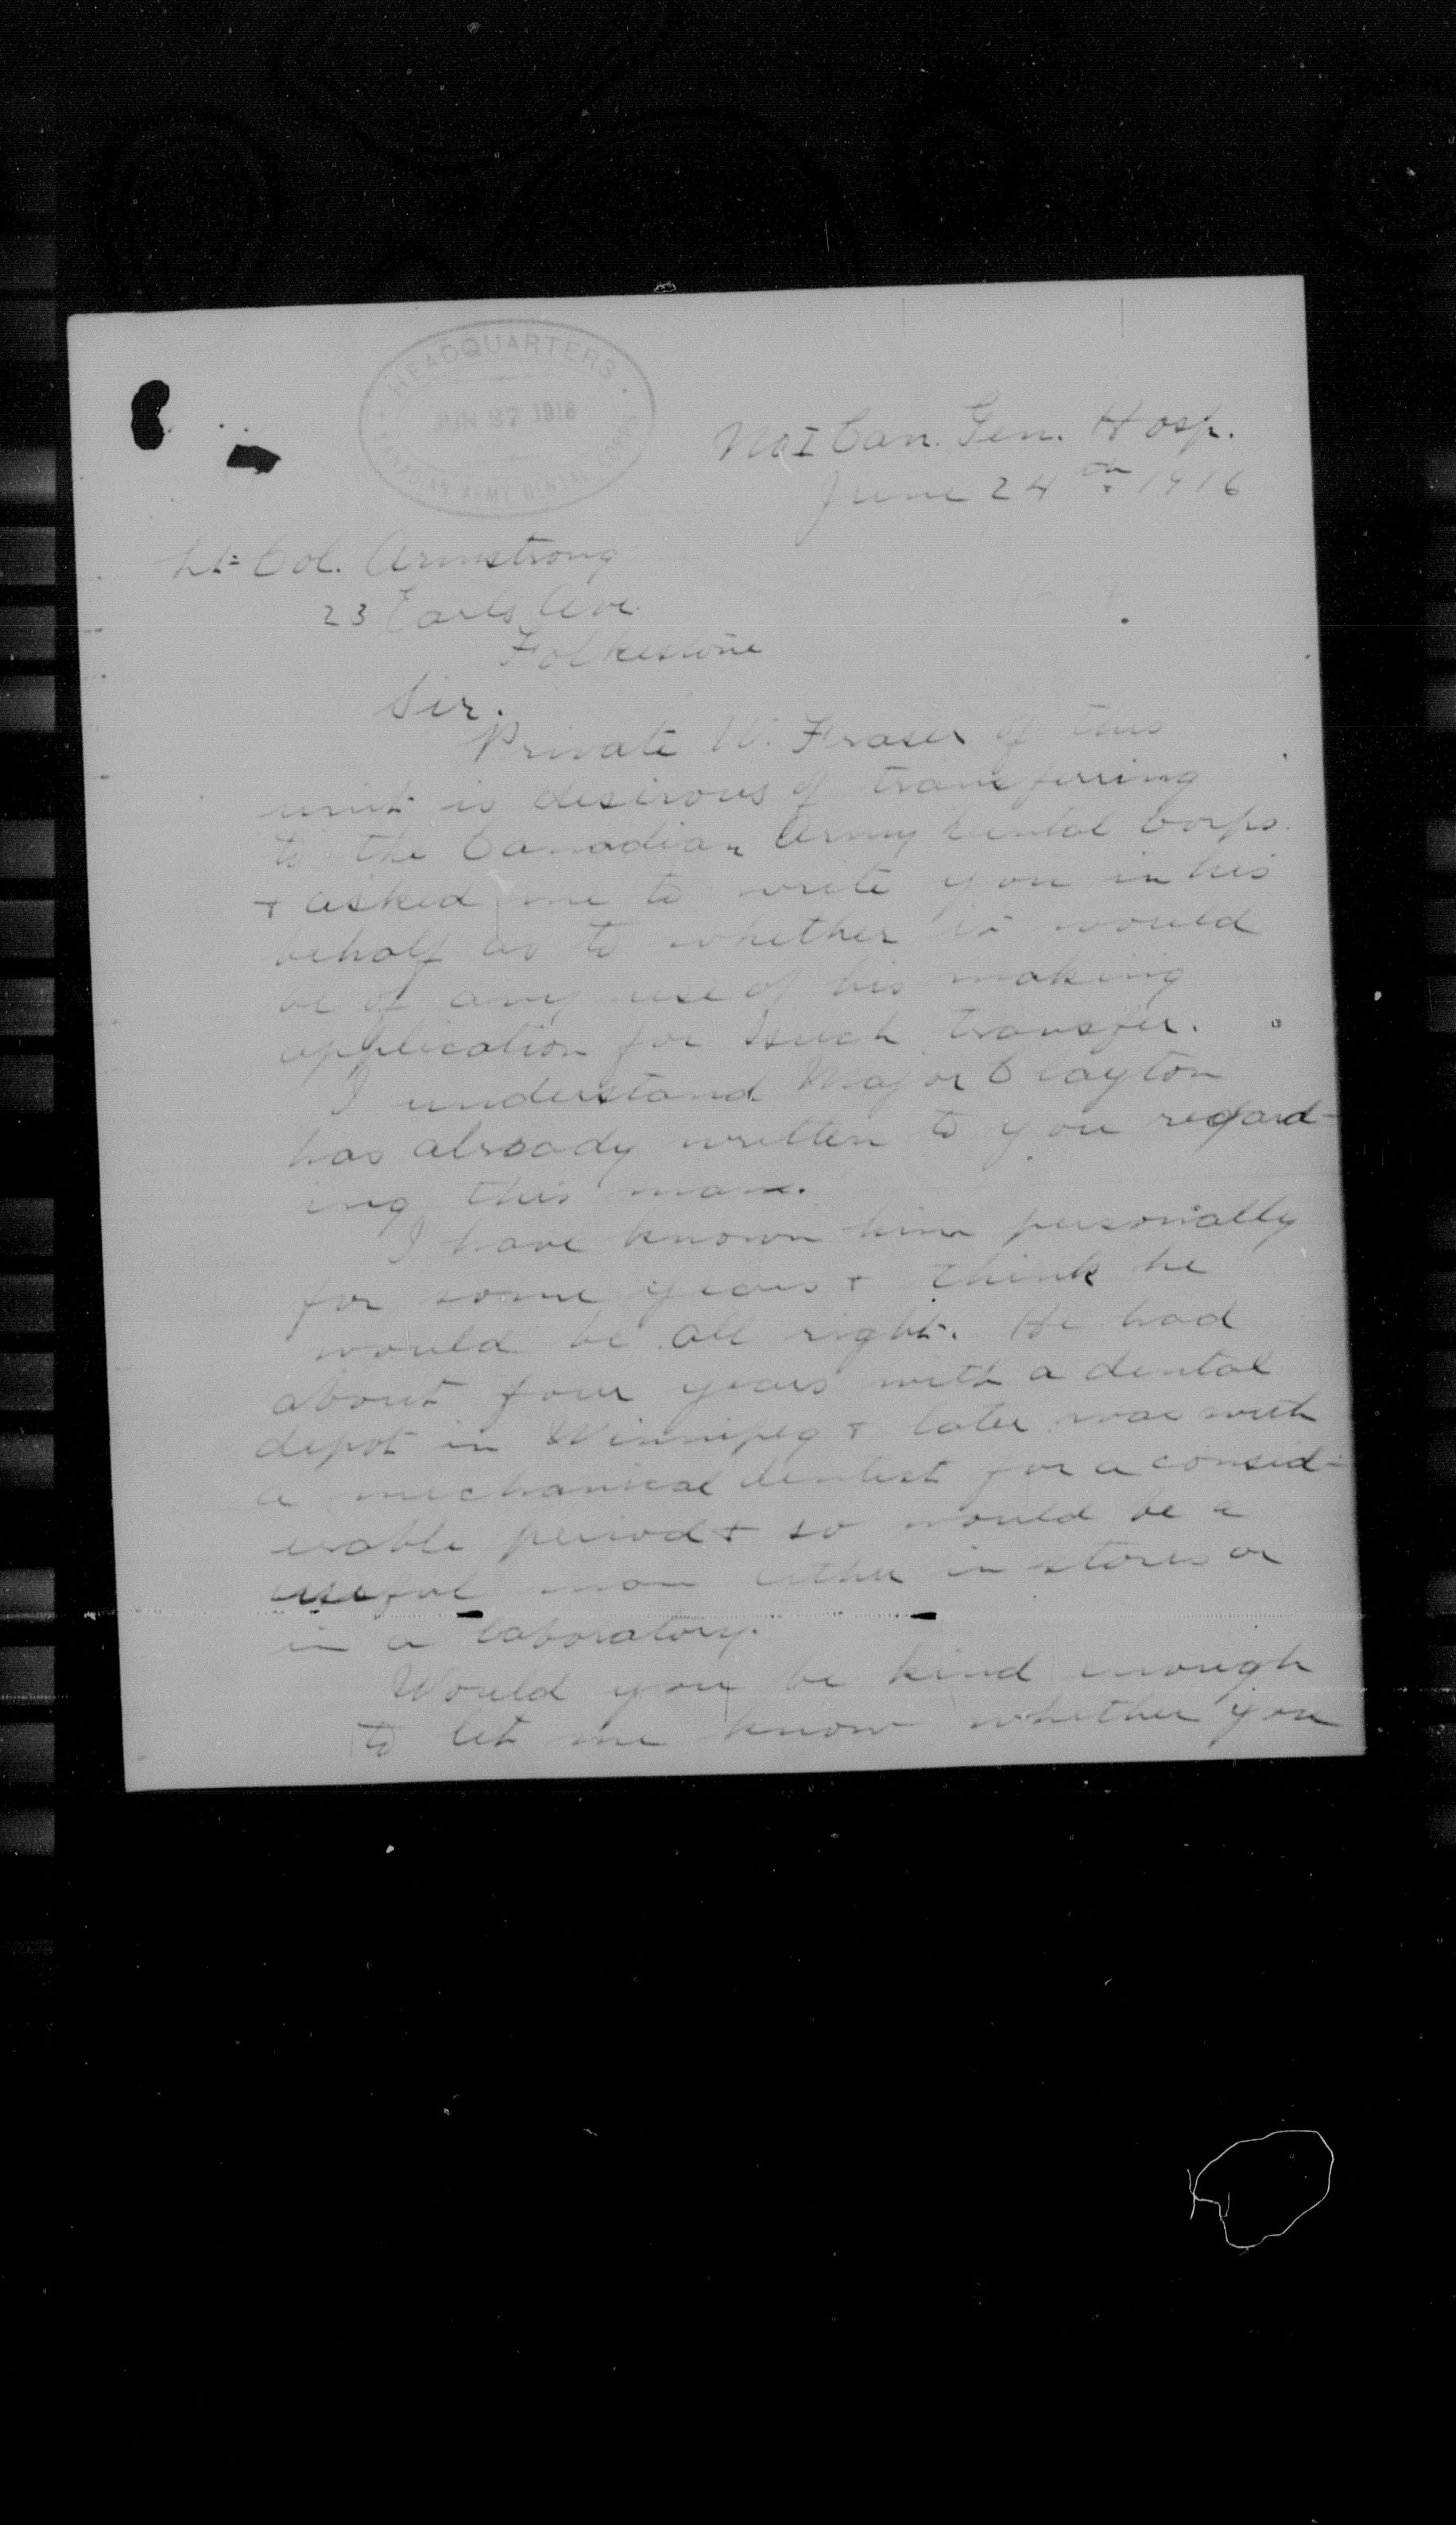 HEADQUARTERS
JUN 27 1916
CANADIAN ARMY DENTAL CORPS
No I Can. Gen. Hosp.
June 24th 1916
Lt-Col. Armstrong
23 Earls Ave.
Folkestone
Sir.
Private W. Fraser of this
unit is desirous of transferring
to the Canadian Army Dental Corps.
+ asked me to write you in his
behalf as to whether it would
be of any use of his making
application for such transfer.
I understand Major Clayton
has already written to you regard-
ing this man.
I have known him personally
for some years + think he
would be all right. He had
about four years with a dental
depot in Winnipeg + later was with
a mechanical dentist for a consid-
erable period + so would be a
useful man either in stores or
in a laboratory.
Would you be kind enough
to let me know whether you